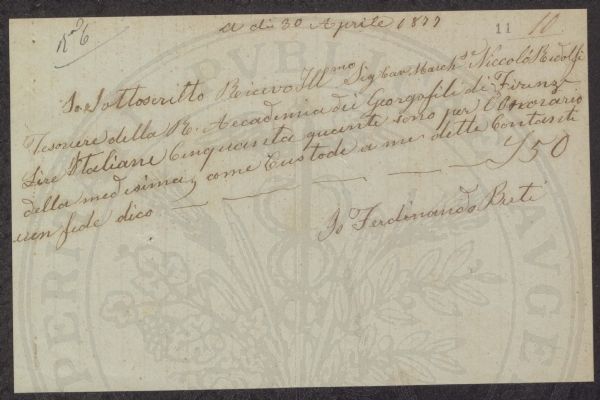 N° 6
a di 30 Aprile 1877
11 10
Io Sottoscritto Ricevo Ill.mo Sig Cav. March.se Niccolò Ridolfi
Tesoriere della R. Accademia dei Georgofili di Firenze
Lire Italiane Cinquanta quante sono per l'Onorario
della medesima, come Custode a me dette Contanti
in fede dico — — — — — £ 50
Io Ferdinando Preti